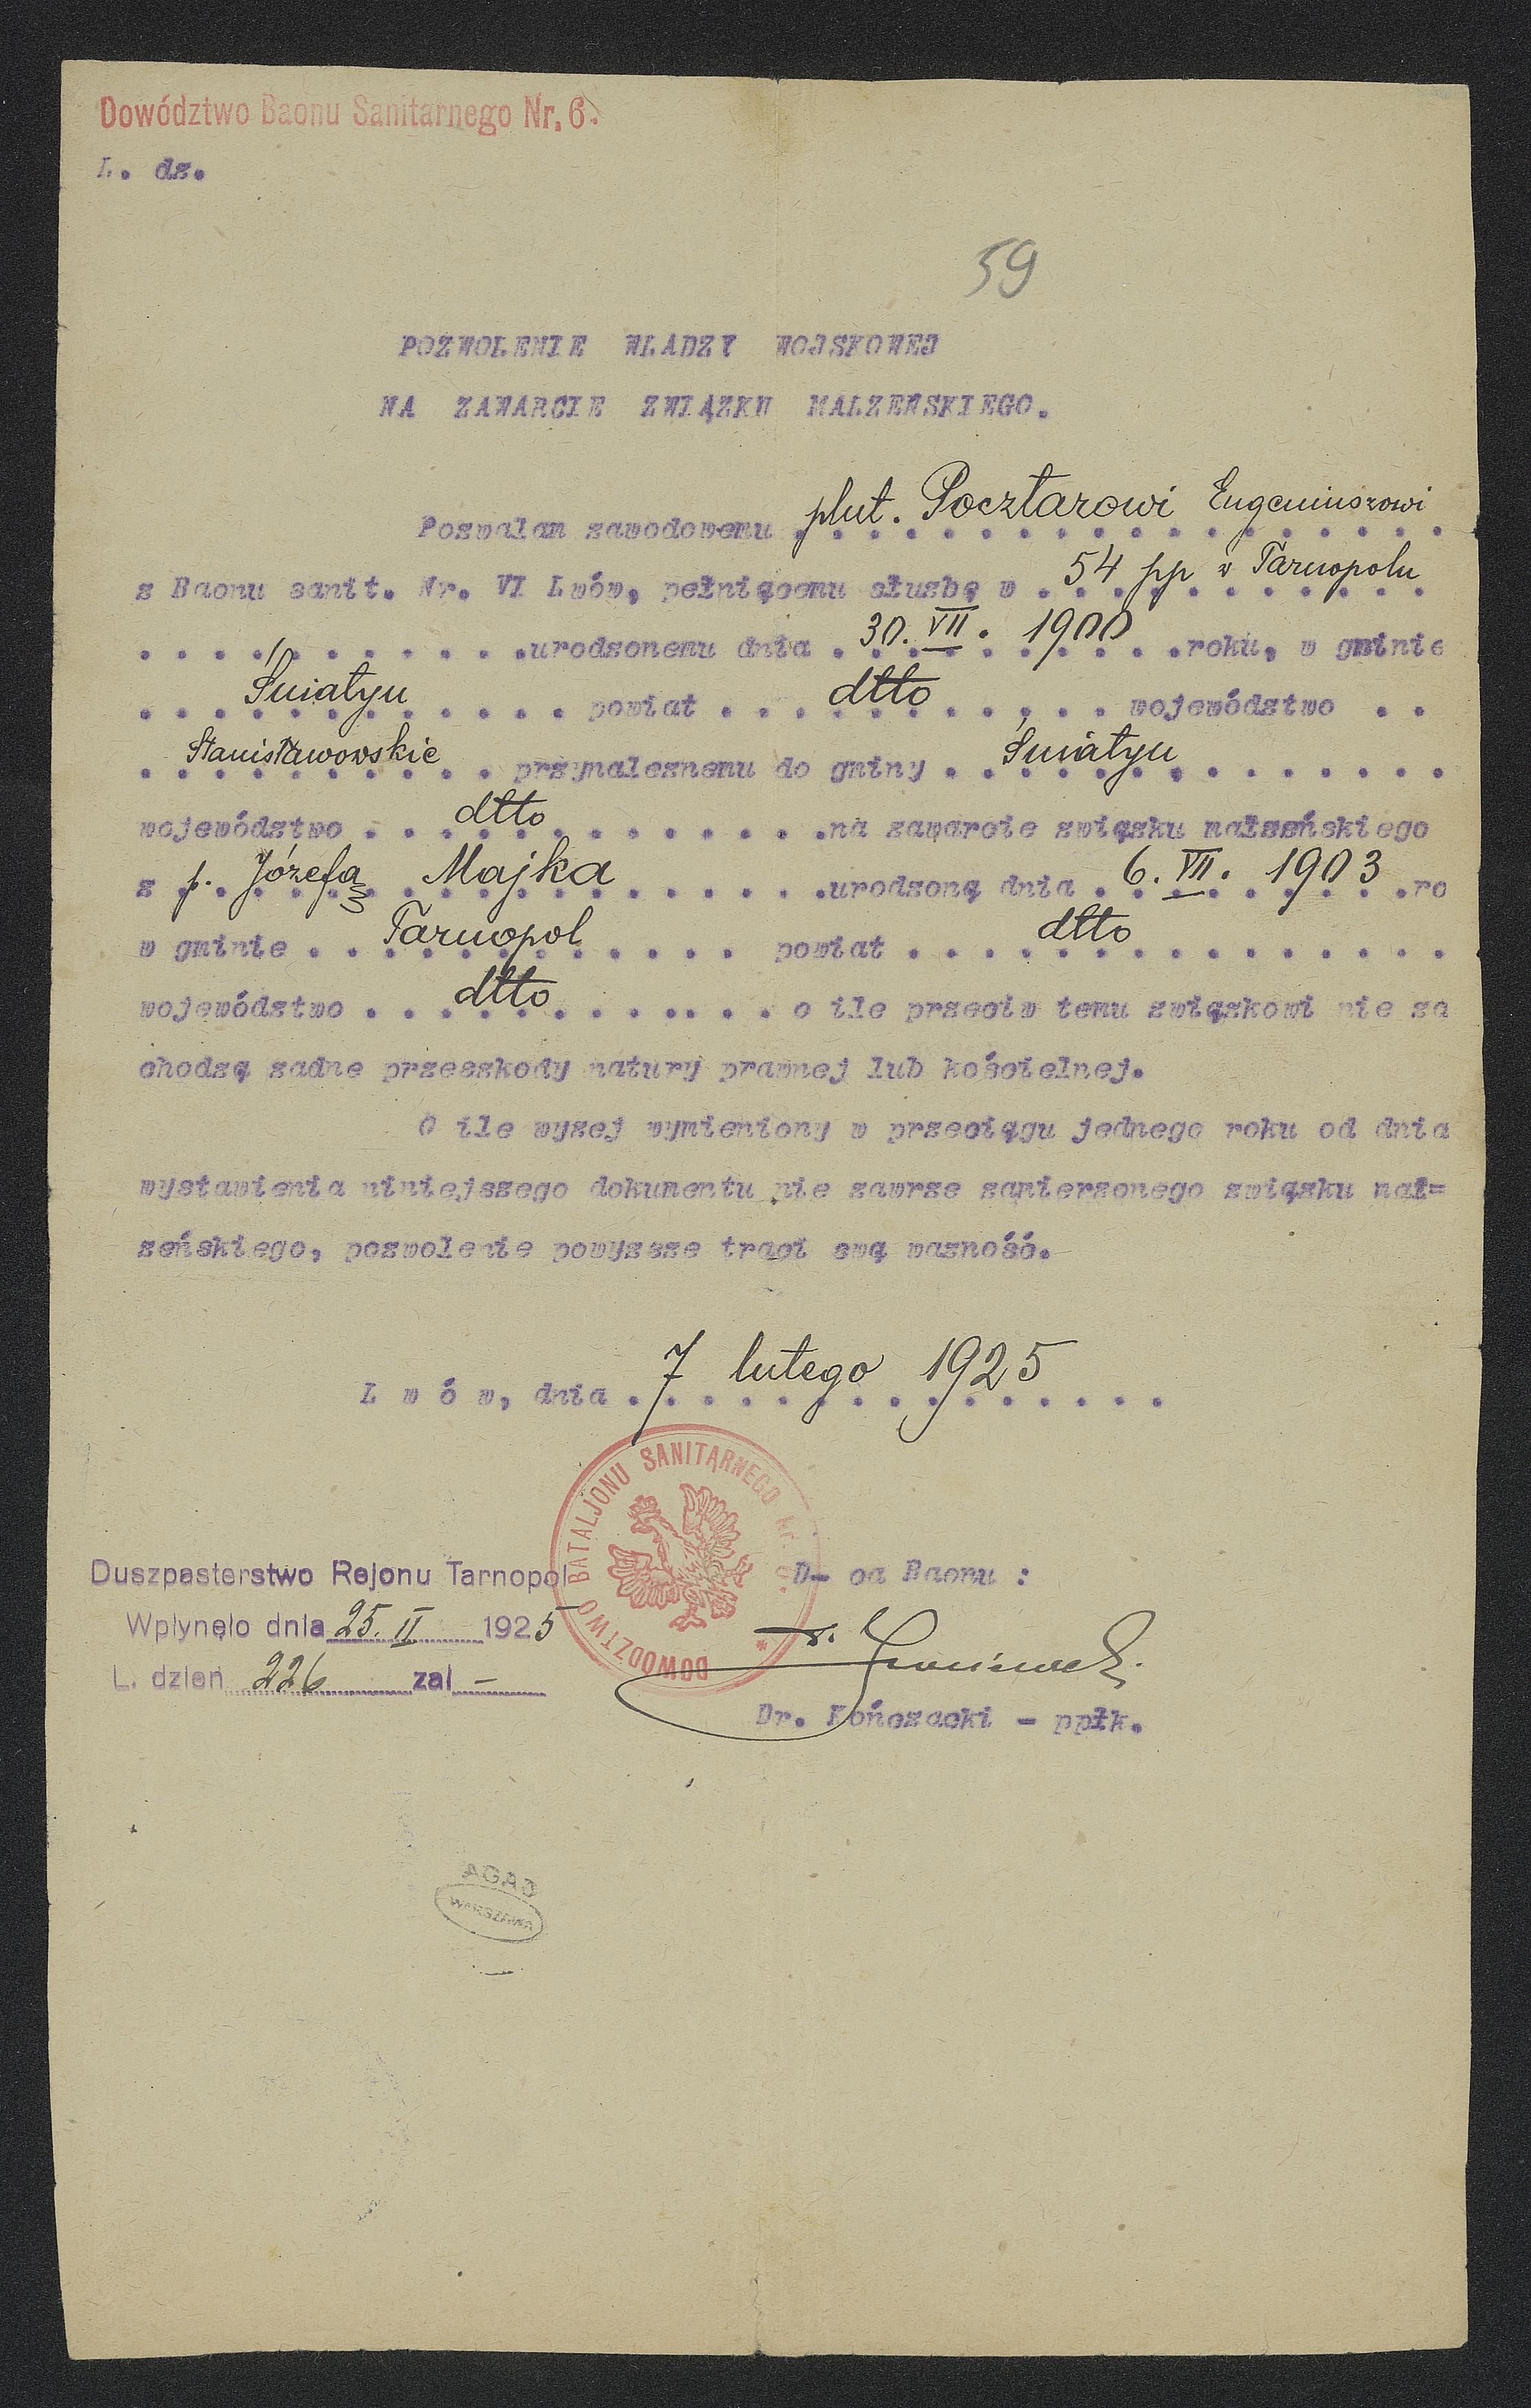 Dowództwo Baonu Sanitarnego Nr. 6.
L. dz.
59
POZWOLENIE WLADZY WOJSKOWEJ
NA ZAWARCIE ZWIĄZKU MALZEŃSKIEGO.
Pozwalam zawodowemu plut. Pocztarowi Eugeniuszowi
z Baonu sanit. Nr. VI Lwów, pełniącemu służbę w 54 pp w Tarnopolu
urodzonemu dnia 30. VII. 1900 roku, w gminie
Śniatyn powiat dtto województwo
Stanisławowskie przynaleznemu do gminy Śniatyn
województwo dtto na zawarcie związku małzeńskiego
z p. Józefą Majka urodzoną dnia 6. VII. 1903 ro
w gminie Tarnopol powiat dtto
województwo dtto o ile przeciw temu związkowi nie za
chodzą zadne przeszkody natury prawnej lub kościelnej.
O ile wyzej wymieniony w przeciągu jednego roku od dnia
wystawienia niniejszego dokumentu nie zawrze zamierzonego związku mał=
zeńskiego, pozwolenie powyzsze traci swą wazność.
L w ó w, dnia 7 lutego 1925
DOWÓDZTWO BATALJONU SANITARNEGO
Duszpasterstwo Rejonu Tarnopol
Wpłynęło dnia 25. II 1925
L. dzien 226 zal –
D- ca Baonu :
Dr. Kończacki - ppłk.
AGAD
WARSZAWA